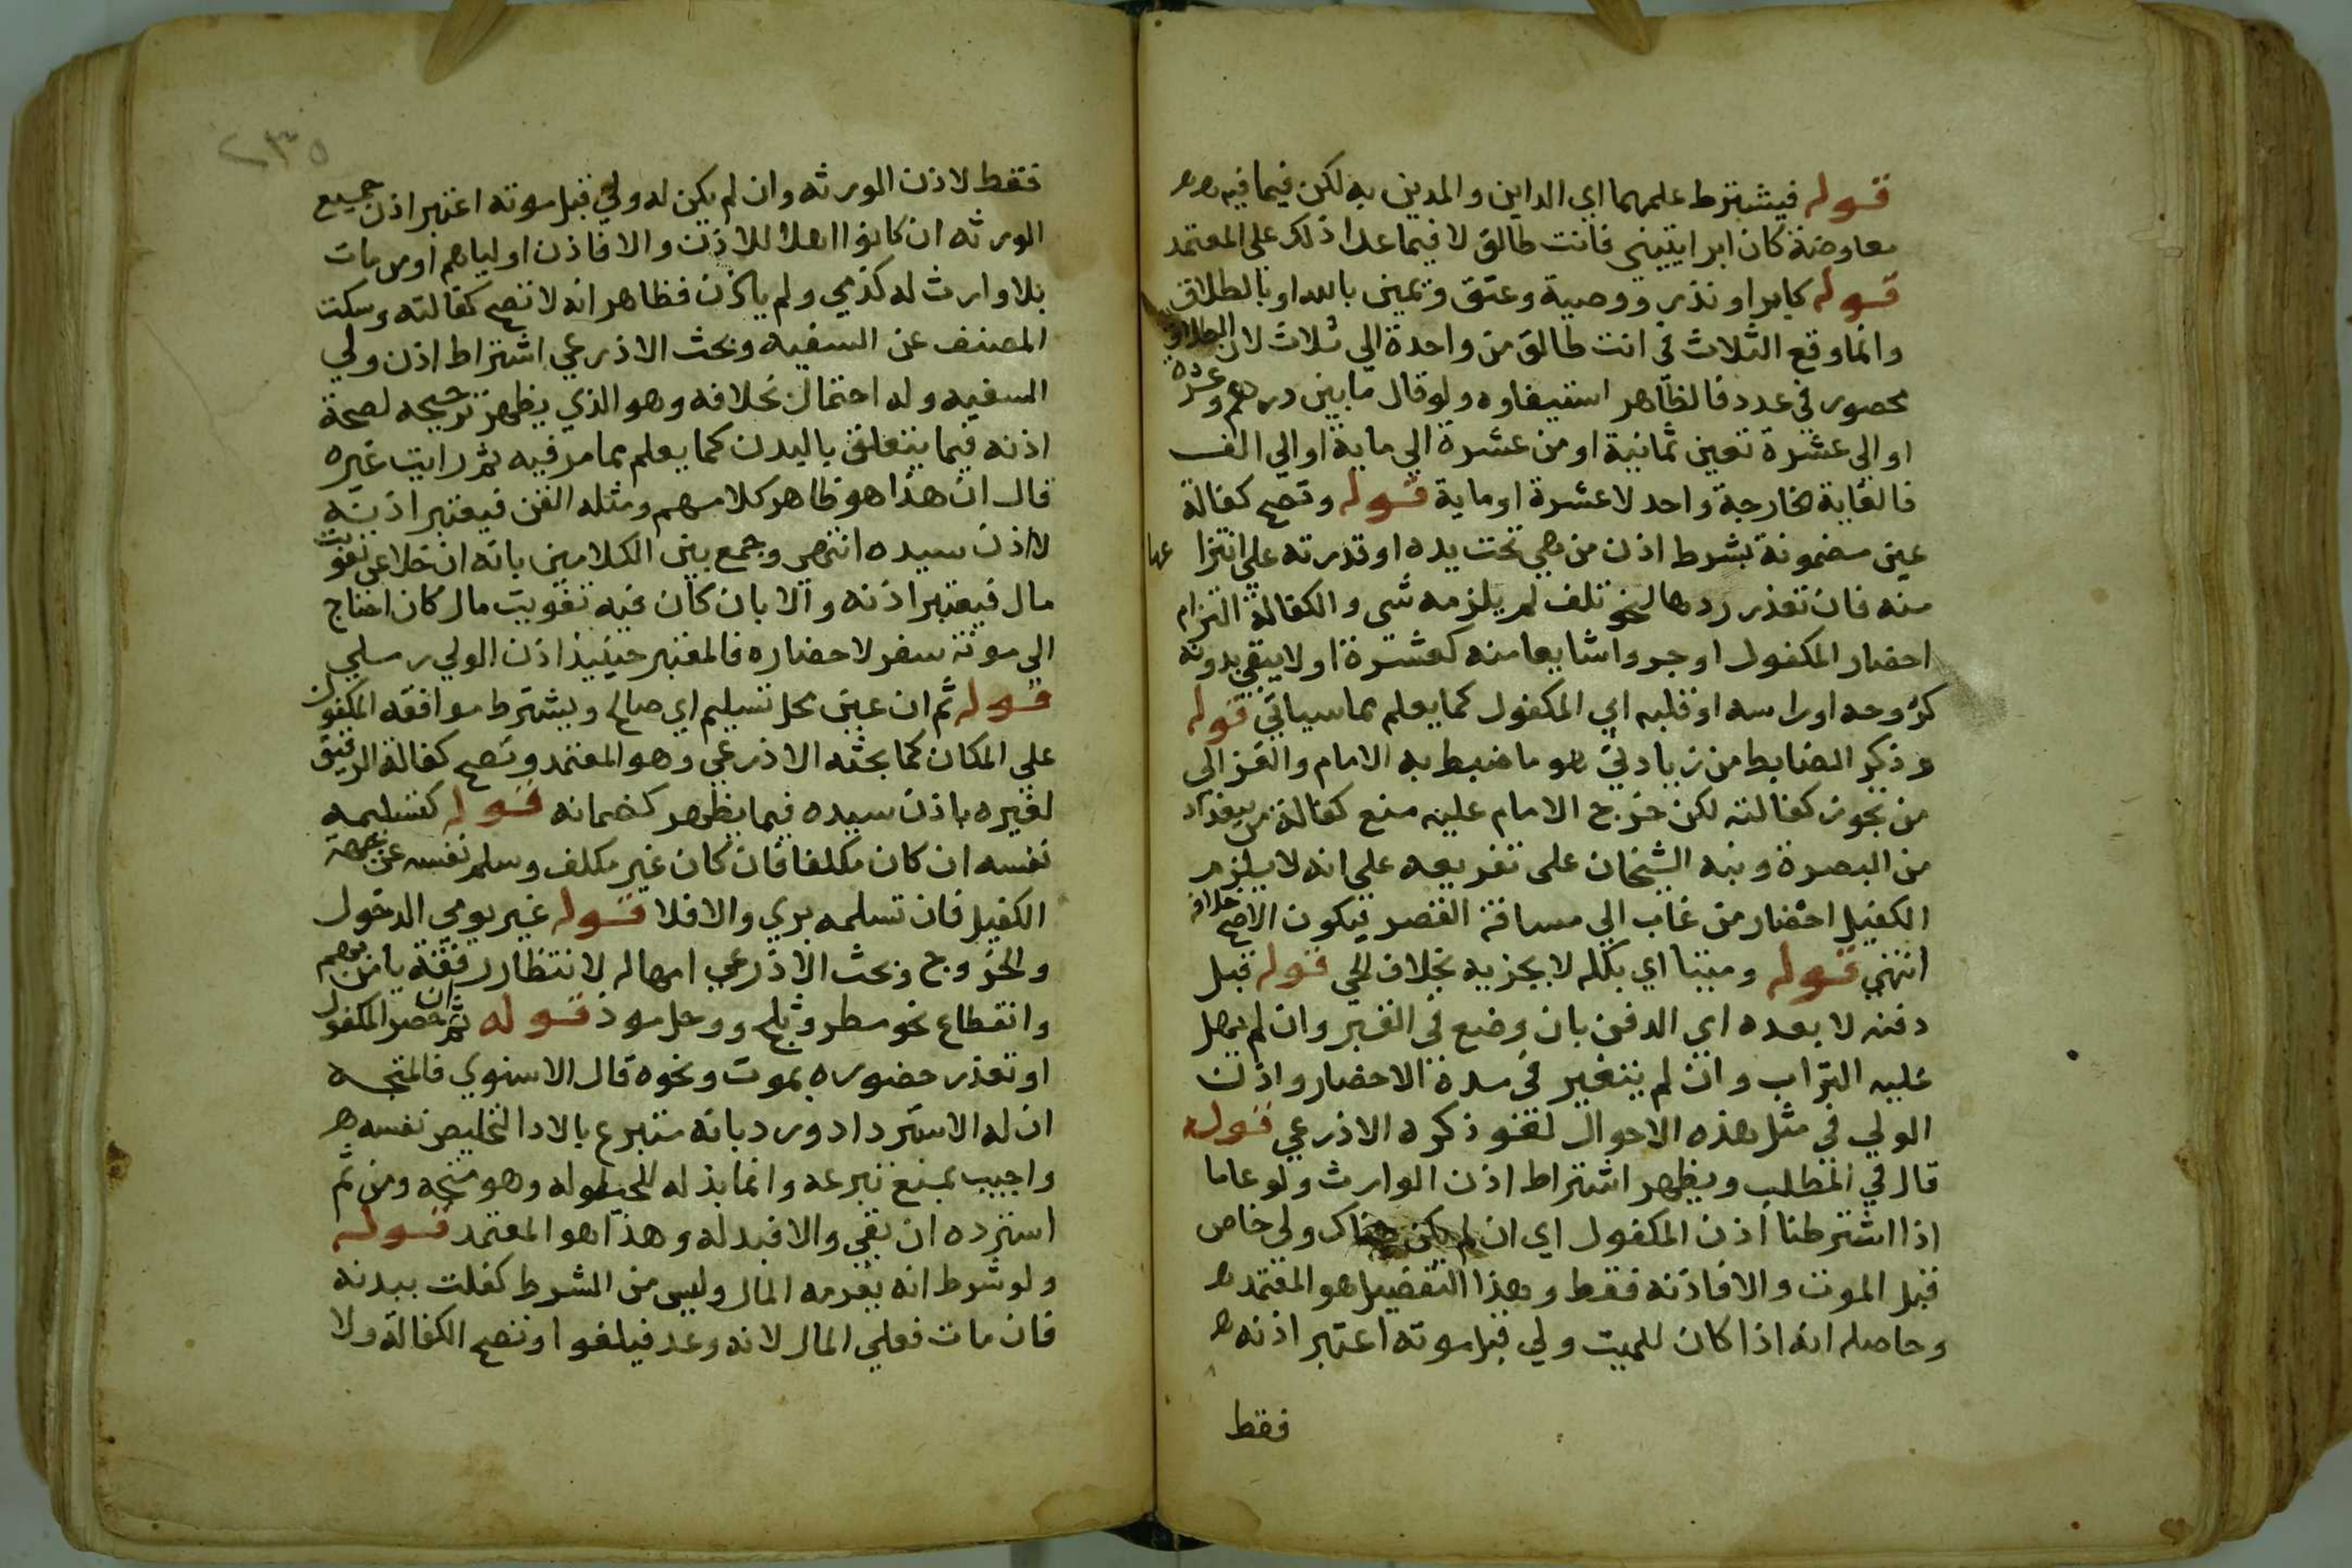 قوله فيشترط علمهما اي الداين والمدين به لكن فيما فيه
معاوضة كان ابراتيني فانت طالق لا فيما عدا ذلك على المعتمد
قوله كابراو نذر ووصية وعتق ويمين بالله او بالطلاق
وانما وقع الثلاث في انت طالق من واحدة الي ثلاث لان الطلاق
محصور في عدد فالظاهر استيفاوه ولو قال ما بين درهم وعشرة
او الى عشرة تعين ثمانية او من عشرة الي ماية او الي الف
فالغاية خارجة واحد لا عشرة او ماية قوله وتصح كفالة
عين مضمونة بشرط اذن من هي تحت يده او قدرته علي انتزاعها
منه فان تعذر ردها لنحو تلف لم يلزمه شي والكفالة التزام
احضار المكفول او جزوا شايعا منه كعشرة او لا يبقي بدونه
كروحه او راسه او قلبه اي المكفول كما يعلم مما سياتي قوله
وذكر الضابط من زيادتي هو ما ضبط به الامام والغزالي
من يجوز كفالته لكن خرج الامام عليه منع كفالة من ببغداد
من البصرة ونبه الشيخان على تفريعه علي انه لا يلزم
الكفيل احضار من غاب الي مسافة القصر فيكون الاصح خلافه
انتهي قوله وميتا اي بكله لا بجزيه بخلاف الحي قوله قبل
دفنه لا بعده اي الدفن بان وضع في القبر وان لم يهل
عليه التراب وان لم يتغير في مدة الاحضار واذن
الولي في مثل هذه الاحوال لغو ذكره الاذرعي قوله
قال في المطلب ويظهر اشتراط اذن الوارث ولو عاما
اذا اشترطنا اذن المكفول اي ان لم يكن هناك ولي خاص
قبل الموت والا فاذنه فقط وهذا التفضيل هو المعتمد
وحاصله انه اذا كان للميت ولي قبل موته اعتبر اذنه
فقط
٢٣٥
فقط لا اذن الورثه وان لم يكن له ولي قبل موته اعتبر اذن جميع
الورثه ان كانوا اهلا للاذن والا فاذن اولياهم او من مات
بلا وارث له كذمي ولم ياذن فظاهر انه لا تصح كفالته وسكت
المصنف عن السفيه وبحث الاذرعي اشتراط اذن ولي
السفيه وله احتمال بخلافه وهو الذي يظهر ترجيحه لصحة
اذنه فيما يتعلق بالبدن كما يعلم مما مر فيه ثم رايت غيره
قال ان هذا هو ظاهر كلامهم ومثله القن فيعتبر اذنه
لا اذن سيده انتهي وجمع بين الكلامين بانه ان خلا عن تفويت
مال فيعتبر اذنه والا بان كان فيه تفويت مال كان احتاج
الي مونة سفر لاحضاره فالمعتبر حينيذ اذن الولي رملي
قوله ثم ان عين محل تسليم اي صالح ويشترط موافقه المكفول
علي المكان كما بحثه الاذرعي وهو المعتمد وتصح كفالة الرقيق
لغيره باذن سيده فيما يظهر كضمانه قوله كتسليمه
نفسه ان كان مكلفا فان كان غير مكلف وسلم نفسه عن جهة
الكفيل فان تسلمه بري والا فلا قوله غير يومي الدخول
والخروج وبحث الاذرعي امهاله لانتظار رفقة يامن بهم
وانقطاع نحو مطر وثلج ووحل موذ قوله ثم ان حضر المكفول
او تعذر حضوره بموت ونحوه قال الاسنوي فالمتجه
ان له الاسترداد ورد بانه متبرع بالادا لتخليص نفسه
واجيب بمنع تبرعه وانما بذله للحيلوله وهو متجه ومن ثم
استرده ان بقي والا فبدله وهذا هو المعتمد قوله
ولو شرط انه يغرمه المال وليس من الشرط كفلت ببدنه
فان مات فعلي المال لانه وعد فيلغوا وتصح الكفالة ولا